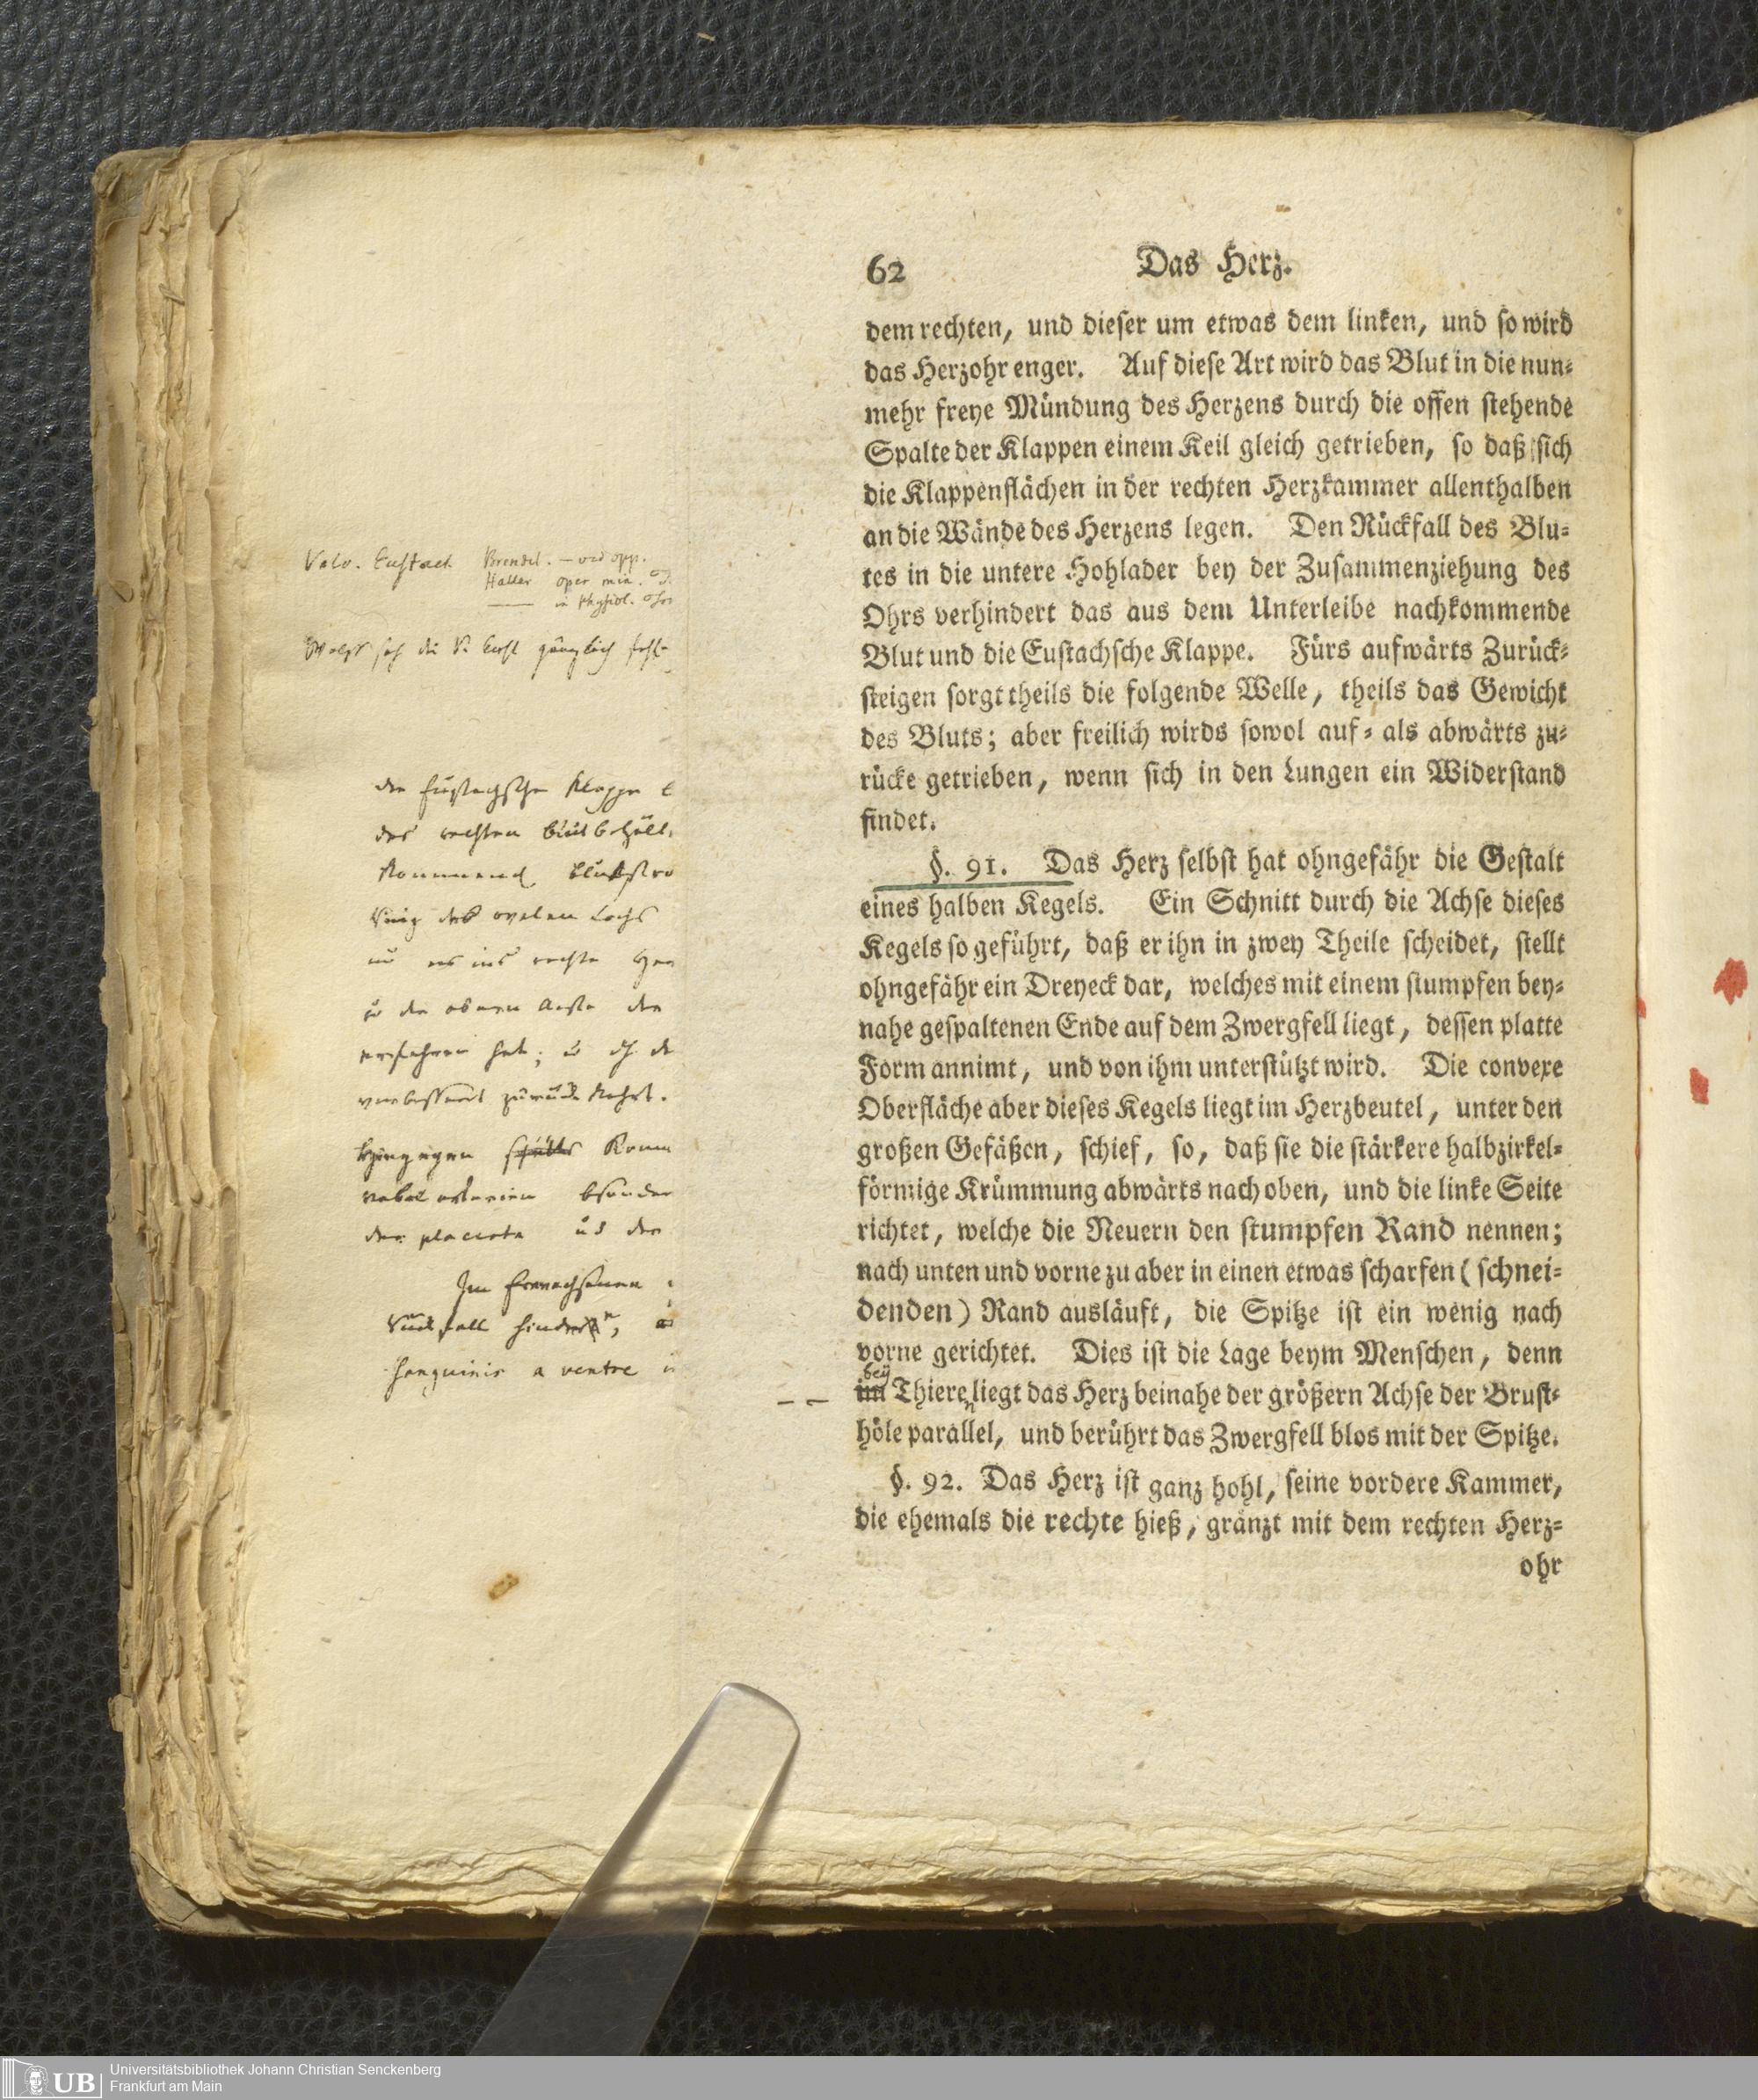 62 Das Herz.
dem rechten, und dieser um etwas dem linken, und so wird
das Herzohr enger. Auf diese Art wird das Blut in die nun-
mehr freye Mündung des Herzens durch die offen stehende
Spalte der Klappen einem Keil gleich getrieben, so daß sich
die Klappenflächen in der rechten Herzkammer allenthalben
an die Wände des Herzens legen. Den Rückfall des Blu-
tes in die untere Hohlader bey der Zusammenziehung des
Ohrs verhindert das aus dem Unterleibe nachkommende
Blut und die Eustachsche Klappe. Fürs aufwärts Zurück-
steigen sorgt theils die folgende Welle, theils das Gewicht
des Bluts; aber freilich wirds sowol auf- als abwärts zu-
rücke getrieben, wenn sich in den Lungen ein Widerstand
findet.
§. 91. Das Herz selbst hat ohngefähr die Gestalt
eines halben Kegels. Ein Schnitt durch die Achse dieses
Kegels so geführt, daß er ihn in zwey Theile scheidet, stellt
ohngefähr ein Dreyeck dar, welches mit einem stumpfen bey-
nahe gespaltenen Ende auf dem Zwergfell liegt, dessen platte
Form annimt, und von ihm unterstützt wird. Die convexe
Oberfläche aber dieses Kegels liegt im Herzbeutel, unter den
großen Gefäßen, schief, so, daß sie die stärkere halbzirkel-
förmige Krümmung abwärts nach oben, und die linke Seite
richtet, welche die Neuern den stumpfen Rand nennen;
nach unten und vorne zu aber in einen etwas scharfen (schnei-
denden) Rand ausläuft, die Spitze ist ein wenig nach
vorne gerichtet. Dies ist die Lage beym Menschen, denn
bey
im Thieren liegt das Herz beinahe der größern Achse der Brust-
höle parallel, und berührt das Zwergfell blos mit der Spitze.
§. 92. Das Herz ist ganz hohl, seine vordere Kammer,
die ehemals die rechte hieß, gränzt mit dem rechten Herz-
ohr
Valv. Eustach. Brendel. opp.
Haller oper min.
in Physiol.
gänzlich
der Eustachschen Klappe
des rechten
kommend
des ovalen Lochs
ins rechte
der obern
hat;
verbessert zurück kehrt.
hingegen
der placenta
Im Erwachsenen
Rückfall
sanguinis a ventre
UB Universitätsbibliothek Johann Christian Senckenberg
Frankfurt am Main